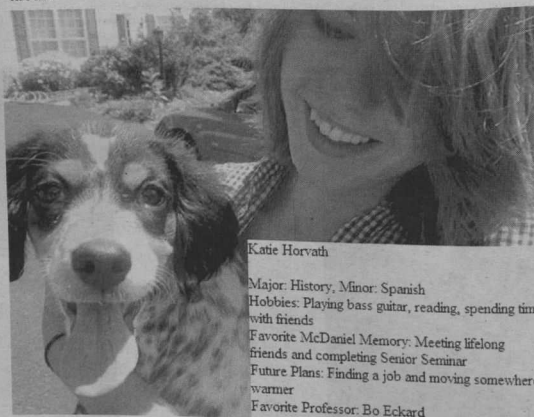 Katie Horvath
Major: History, Minor: Spanish
Hobbies: Playing bass guitar, reading, spending tim
with friends
Favorite McDaniel Memory: Meeting lifelong
friends and completing Senior Seminar
Future Plans: Finding a job and moving somewher
warmer
Favorite Professor: Bo Eckard